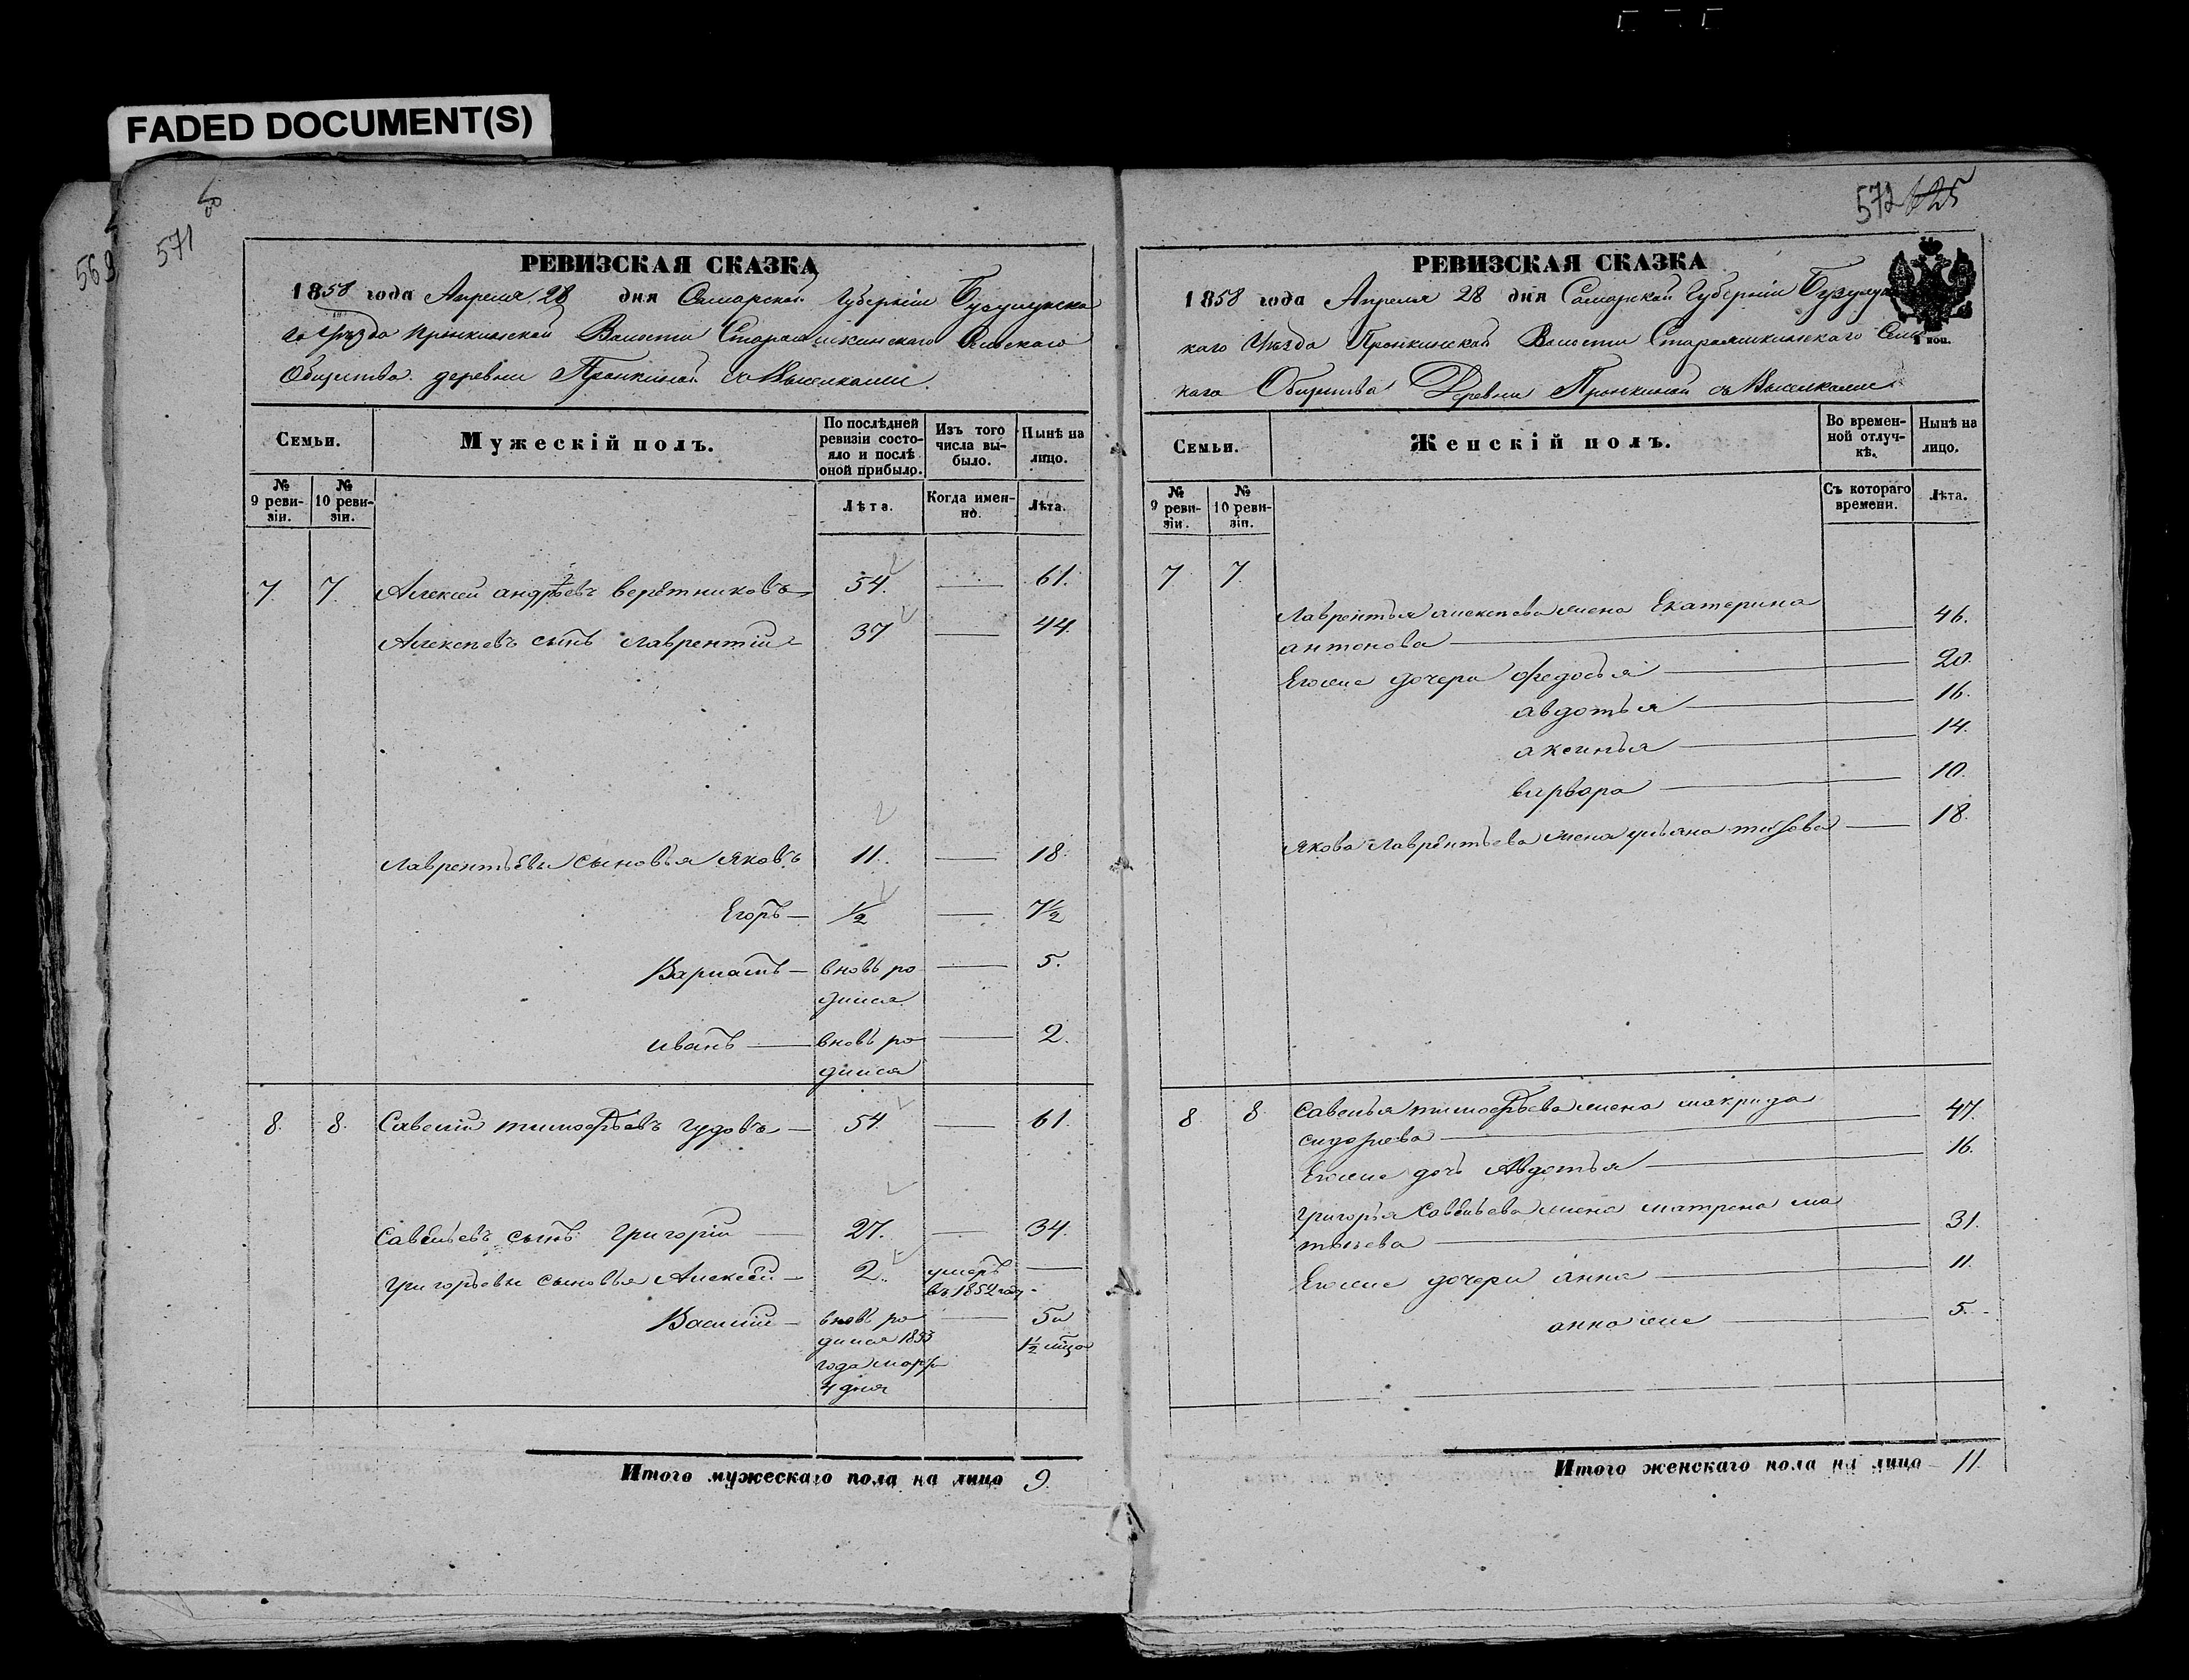 FADED DOCUMENT(S)
569
571
РЕВИЗСКАЯ СКАЗКА
1858 года Апреля 28 дня Самарской Губернии Бузулукска
го Уѣзда Пронкинской Волости Стараашкинскаго Сельскаго
Общества деревни Пронкиной съ Выселками.
Семьи.
Мужескій полъ.
По послѣдней ревизіи состояло и послѣ оной прибыло.
Изъ того числа выбыло.
Нынѣ на лицо.
№ 9 ревизіи.
№ 10 ревизіи.
Лѣта.
Когда именно.
Лѣта.
7. 7. Алексей андреевъ веретниковъ 54. — 61.
Алексѣевъ сынъ Лаврентій 37 — 44.
Лаврентьевы сыновья Яковъ 11. — 18.
Егоръ — ½ — 7½
Варламъ — вновь ро — 5.
дился
иванъ — вновь ро — 2.
дился
8. 8. Савелій тимофѣевъ гудовъ — 54. — 61.
Савельевъ сынъ григорій — 27. — 34.
григорьевы сыновья Алексѣй — 2. умеръ —
въ 1852 году
Василій — вновь ро — 5 и
дился 1853 1½ мѣца
года мар
4 дня
Итого мужескаго пола на лицо 9.
572 625
РЕВИЗСКАЯ СКАЗКА
1858 года Апреля 28 дня Самарской Губерніи Бузулу
каго Уѣзда Пронкинской Волости Стараашкинскаго Сельс
каго Общества Деревни Пронкиной съ Выселками
коп.
Семьи.
Женскій полъ.
Во временной отлучкѣ.
Нынѣ на лицо.
№ 9 ревизіи.
№ 10 ревизіи.
Съ котораго времени.
Лѣта.
7. 7.
Лаврентья алексѣева жена Екатерина
антонова — 46.
Егоже дочери Федосья — 20.
авдотья — 16.
аксинья — 14.
варвара — 10.
Якова Лаврентьева жена ульяна — 18.
8. 8. Савелья тимофѣева жена макрида
сидорова — 47.
Егоже дочь Авдотья — 16.
григорья Савельева жена матрена ма
— 31.
Егоже дочери анна — 11.
анна же — 5.
Итого женскаго пола на лицо 11.